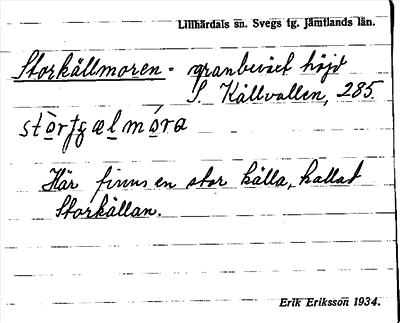 Lillhärdals sn. Svegs tg. Jämtlands län.
Storkällmoren - granbeväxt höjd
S. Källvallen, 285.
stòrʃɕælmóra
Här finns en stor källa, kallad
Storkällan.
Erik Eriksson 1934.